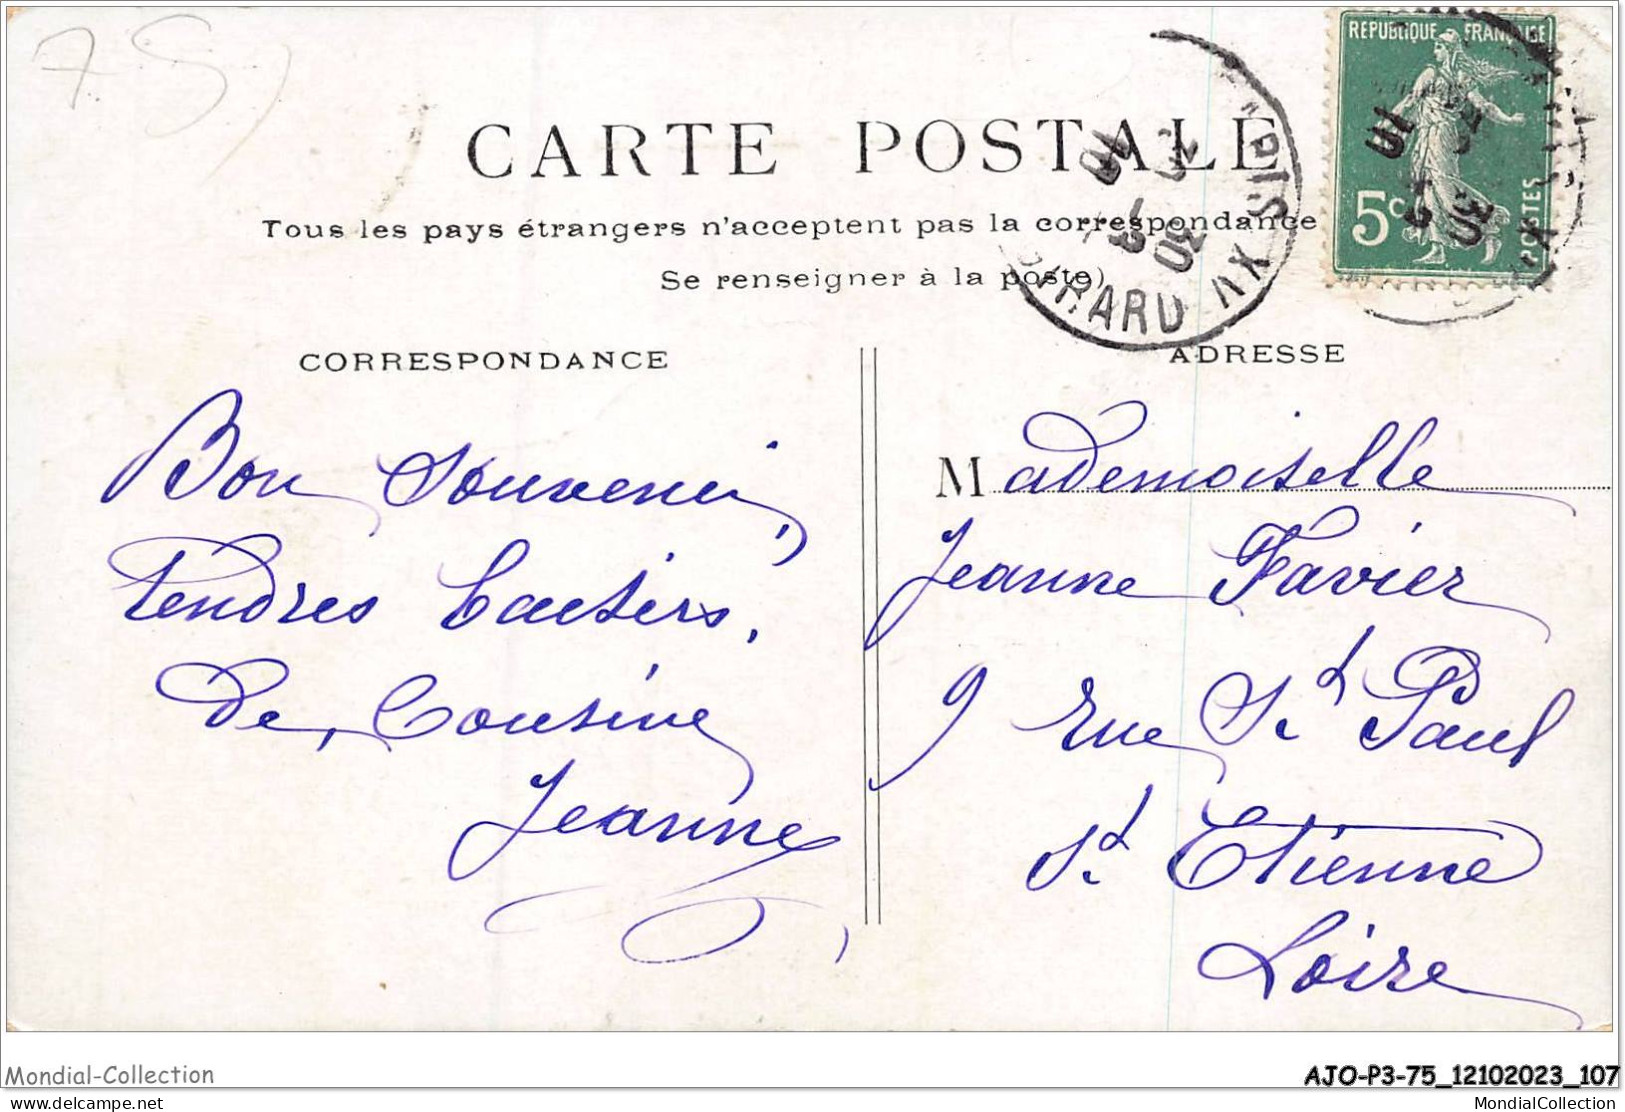 75
CARTE POSTALE
RÉPUBLIQUE FRANÇAISE
5c
POSTES
Tous les pays étrangers n'acceptent pas la correspondance
Se renseigner à la poste)
CORRESPONDANCE
ADRESSE
Bon Souvenir,
Tendres baisers,
De, Cousine
Jeanne
Mademoiselle
Jeanne Favier
9 Rue St Paul
St Etienne
Loire
Mondial-Collection
AJO-P3-75_12102023_107
delcampe.net
MondialCollection